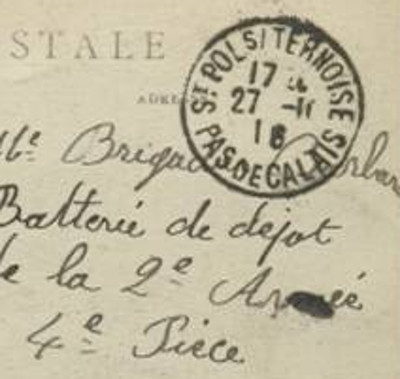 STALE
ADRE
ST POL S/TERNOISE
17
27 -11
16
PAS DE CALAIS
Batterie de dépot
de la 2e Armée
4e Pièce